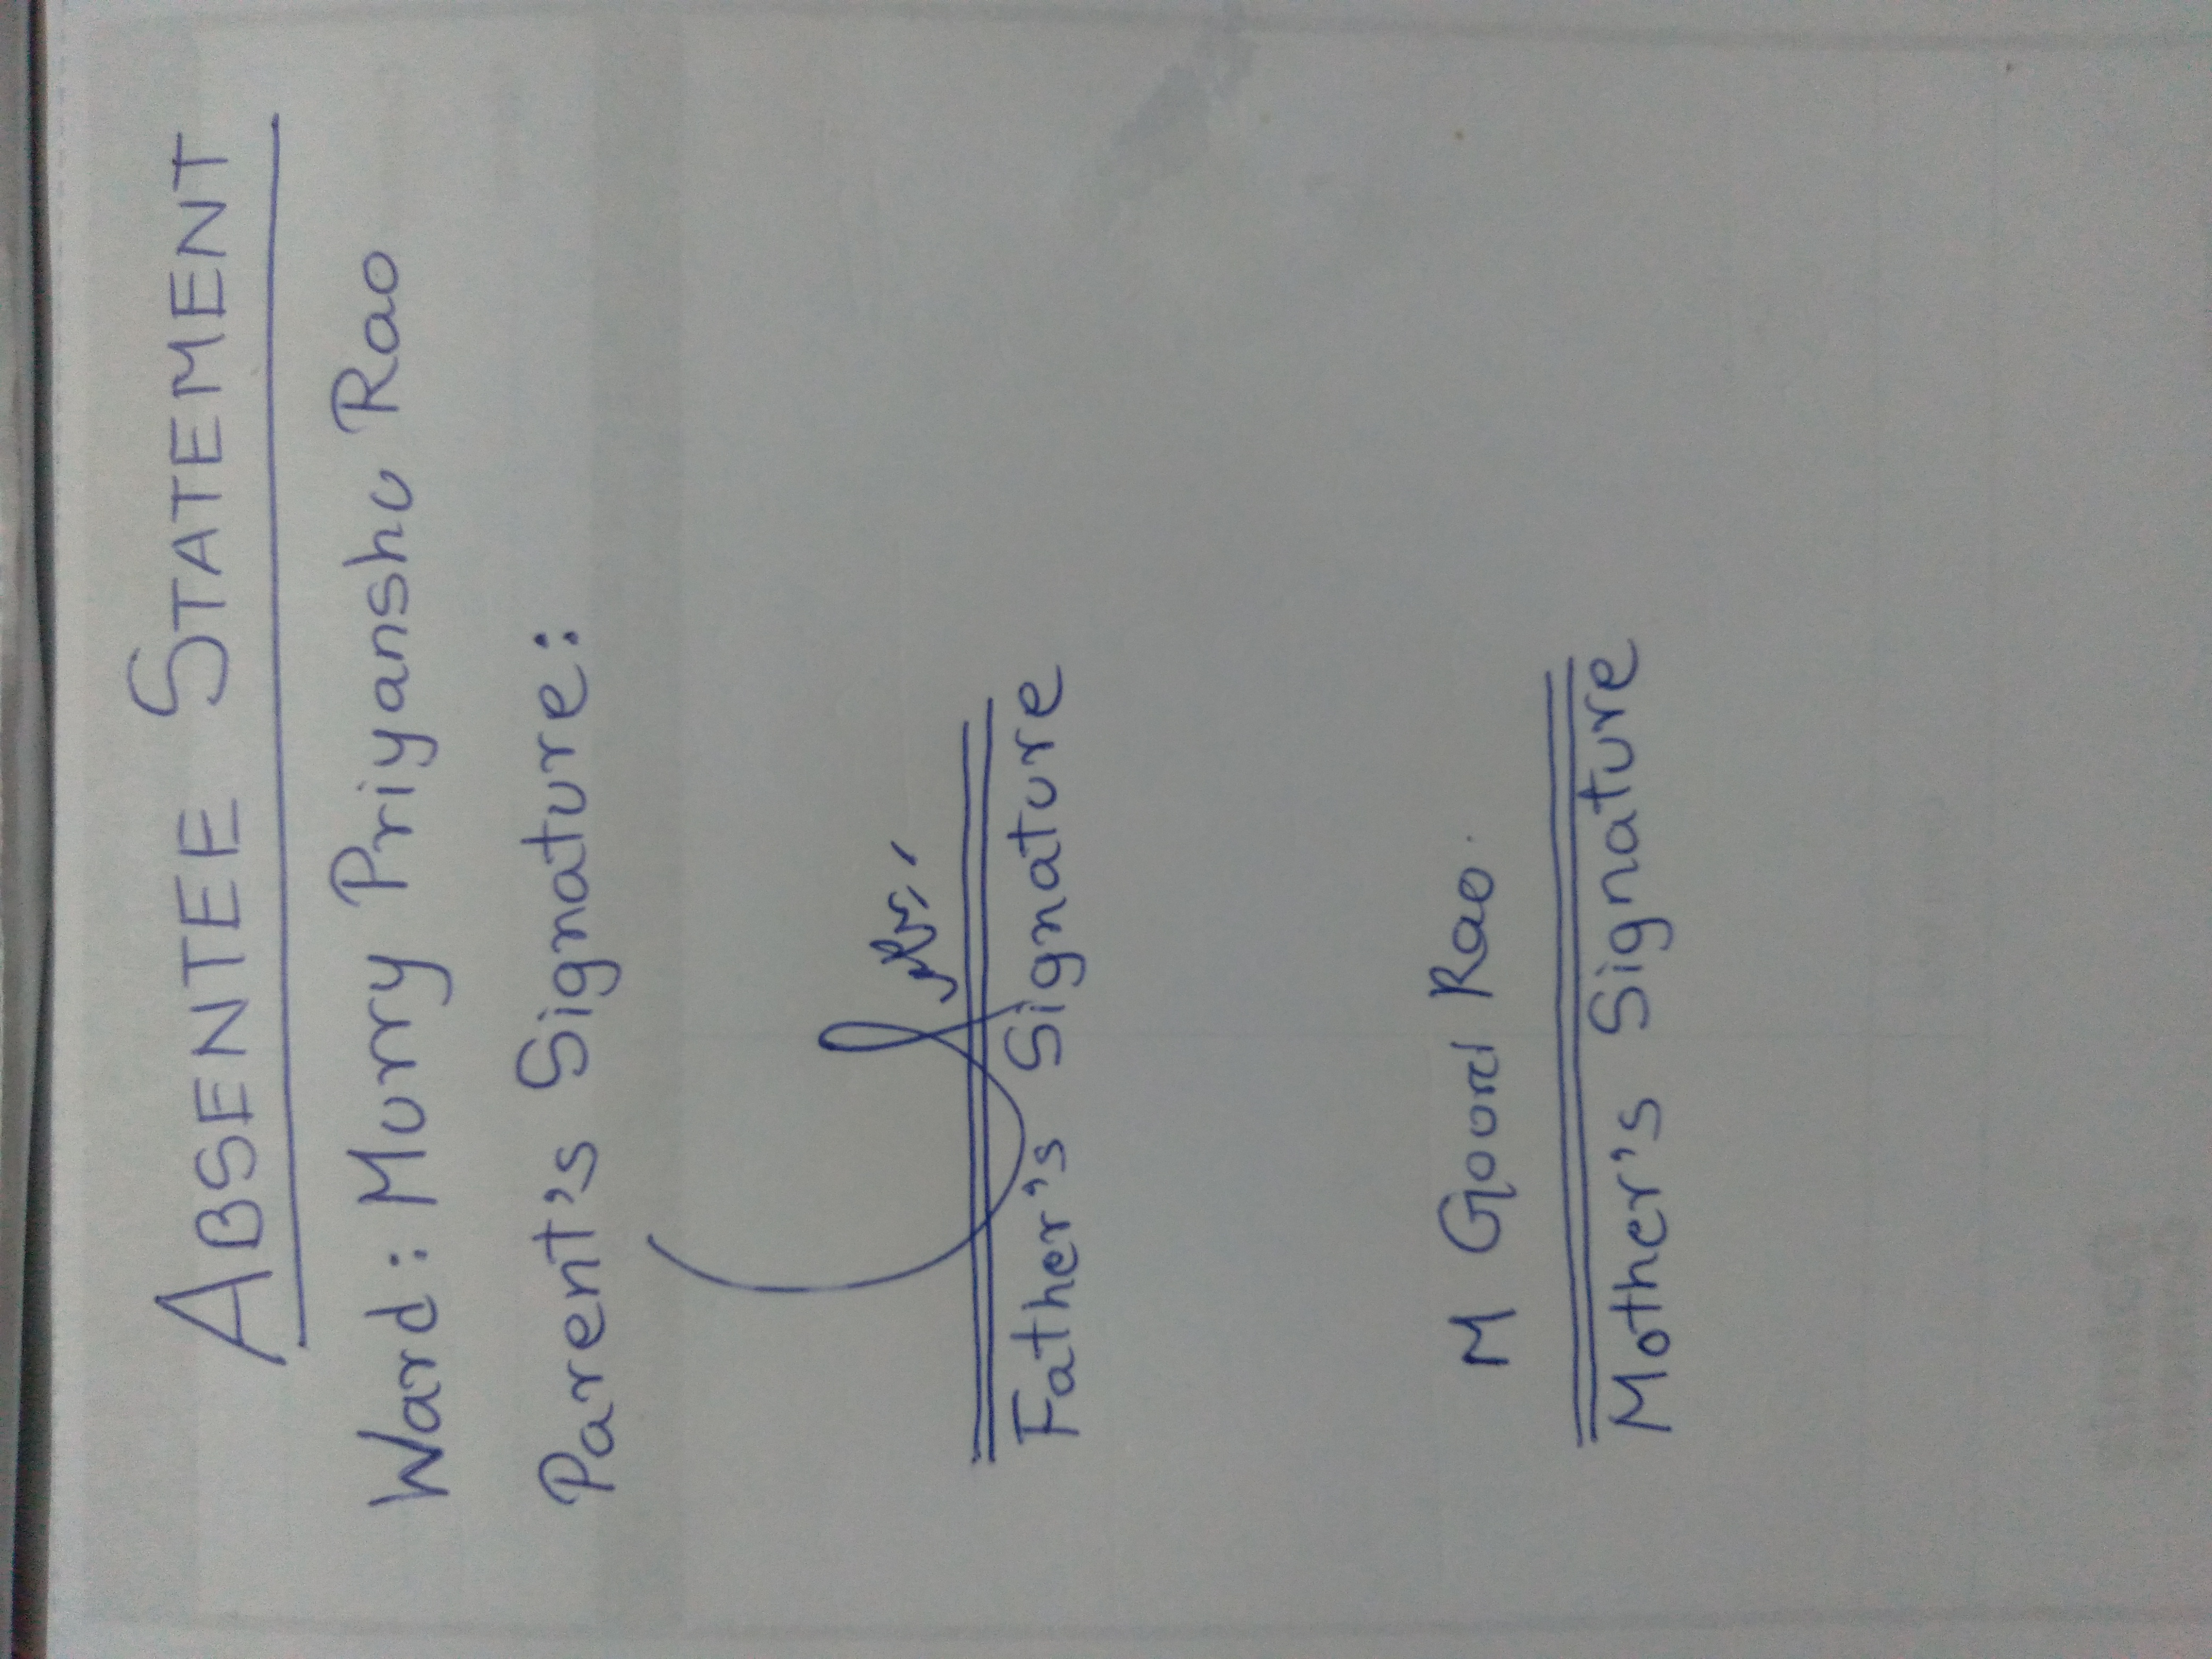 ABSENTEE STATEMENT
Ward: Murry Priyanshu Rao
Parent's Signature:
Father's Signature
M Gouri Rao.
Mother's Signature